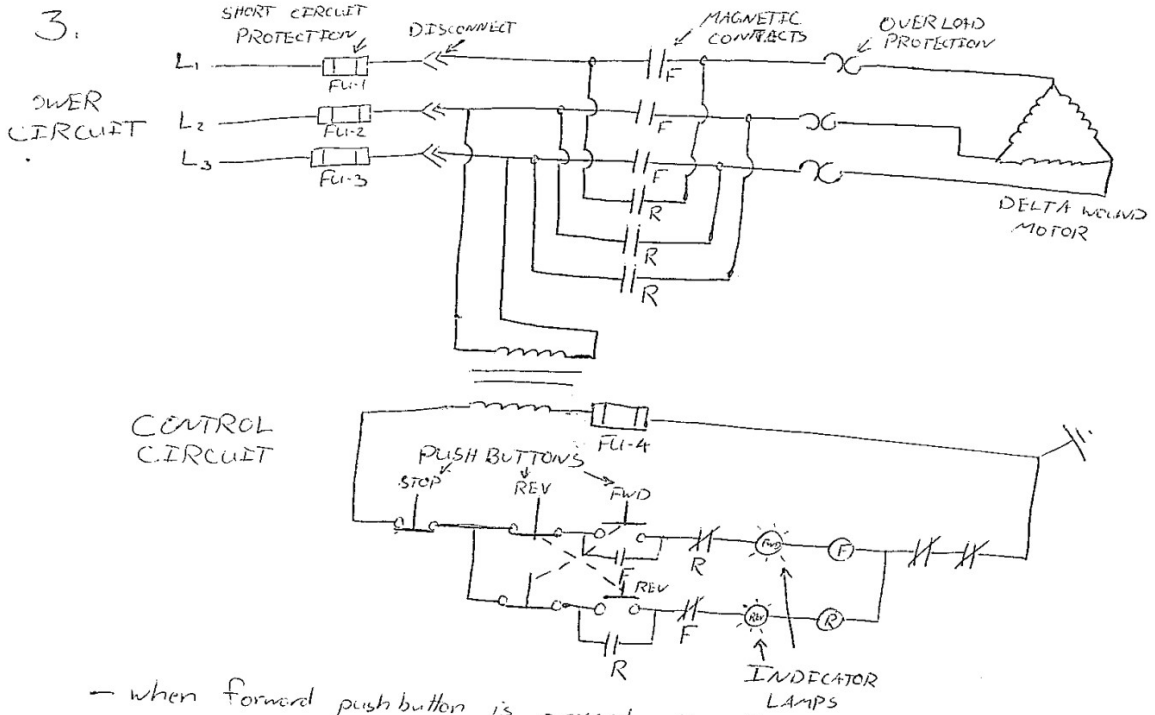 3.
SHORT CIRCUIT
PROTECTION
DISCONNECT
MAGNETIC
CONTACTS
OVERLOAD
PROTECTION
L1
FU-1
F
OWER
CIRCUIT
L2
FU-2
F
L3
FU-3
F
R
R
R
DELTA WOUND
MOTOR
CONTROL
CIRCUIT
FU-4
PUSH BUTTONS
STOP
REV
FWD
F
R
FWD
F
REV
R
F
REV
R
INDECATOR
LAMPS
- when forward pushbutton is